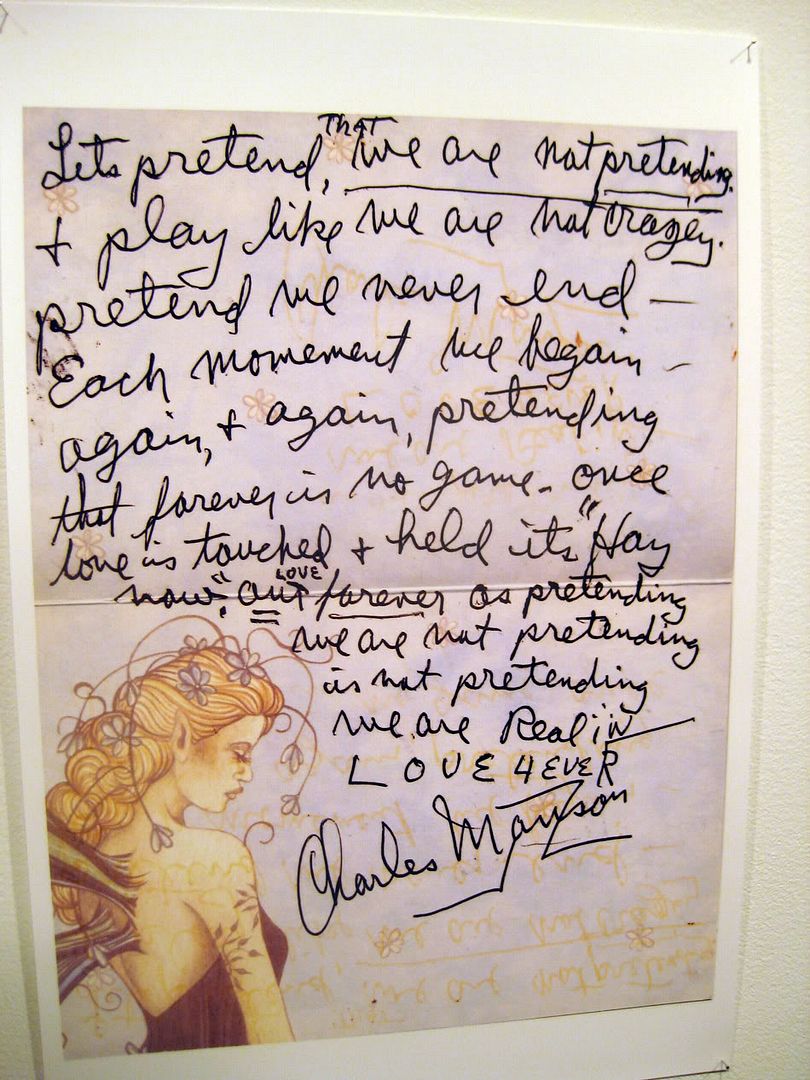 Lets pretend, THAT we are not pretending.
+ play like we are not crazey.
pretend we never end —
Each momement we begain -
again, + again, pretending
that forever is no game - once
love is touched + held its "Hay
now". our LOVE forever as pretending
we are not pretending
is not pretending
we are Real in
LOVE 4EVER
Charles Manson